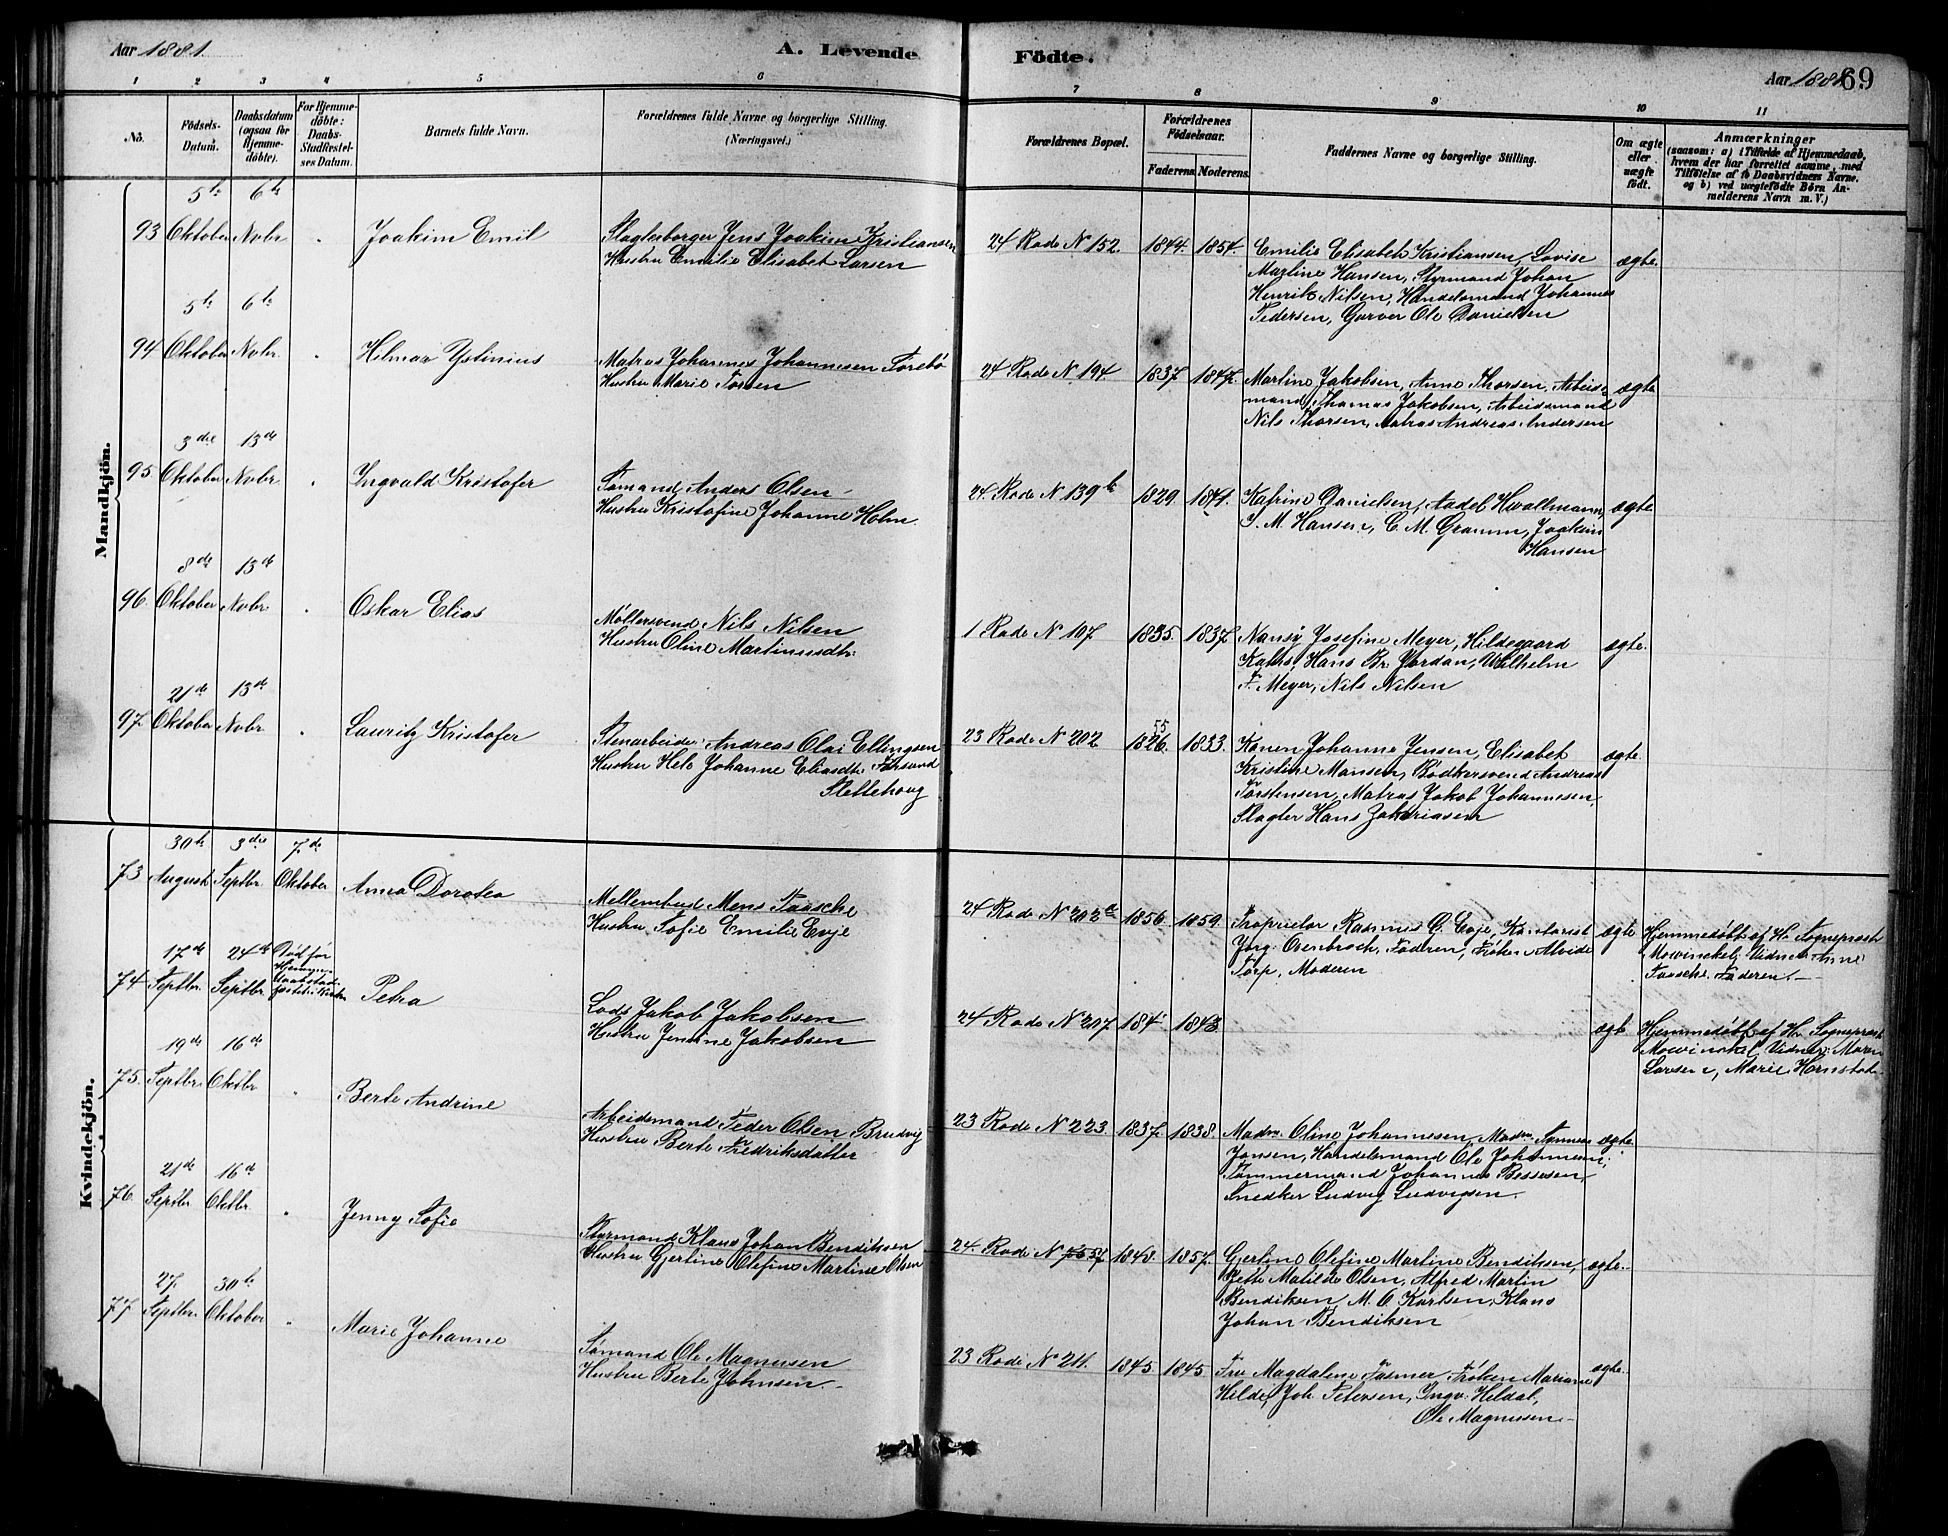 Aar 1881.
A. Levende
Födte.
Aar 1881
69
1 2 3 4 5 6
7 8 9 10 11
No.
Födsels-
Datum.
Daabsdatum
(ogsaa for
Hjemme-
döbte).
For Hjemme-
döbte:
Daabs-
Stadfæstel-
ses Datum.
Barnets fulde Navn.
Forældrenes fulde Navne og borgerlige Stilling.
(Næringsvei.)
Forældrenes Bopæl.
Forældrenes
Födselsaar.
Faderens. Moderens.
Faddernes Navne og borgerlige Stilling.
Om ægte
eller
uægte
födt.
Anmærkninger
(saasom: a) i Tilfælde af Hjemmedaab,
hvem der har forrettet samme, med
Tilföielse af to Daabsvidners Navne.
og b) ved uægtefödte Börn An-
melderens Navn m. V.)
Mandkjön.
5te 6te
93 Oktober Novbr " Joakim Emil
Slagterborger Jens Joakim Kristiansen
Hustru Emilie Elisabet Larsen
24 Rode N 152. 1844. 1854.
Emilie Elisabeth Kristiansen, Lovise
Martine Hansen, Styrmand Johan
Henrik Nilsen, Handelsmand Johannes
Pedersen, Garver Ole Danielsen
ægte.
5te 6te
94 Oktober Novbr. " Hilmar Ystinius
Matros Johannes Johannesen
Hustru Marie
24 Rode N 194 1837. 1847.
Martine Jakobsen, Anne Thorsen, Arbeids-
mand Thomas Jakobsen, Arbeidsmand
Nils Thorsen, Matros Andreas Andersen
ægte
3die 13de
95. Oktober Novbr. " Ingvald Kristofer
Sømand Anders Olsen
Hustru Kristofine Johanne Holm
24 Rode N 139 b 1829
Katrine Danielsen, Aadel
J. M. Hansen, C. M. Gramm, Joakim
Hansen
ægte.
8de 13de
96. Oktober Novbr. " Oskar Elias
Møllersvend Nils Nilsen
Hustru Oline Martinusdtr.
1 Rode N 107 1835. 1837.
Nansy Josefine Meyer, Hildegaard
Hans Br. Jordan, Wilhelm
F. Meyer, Nils Nilsen
ægte.
21de 13de
97. Oktober Novbr " Lauritz Kristofer
Stenarbeider Andreas Olai Ellingsen
Hustru Johanne Eliasdtr.
23 Rode N 202 55 1826. 1833.
Karen Johanne Jensen, Elisabet
Kristine Bødkersvend Andreas
Torstensen, Matros Jakob Johannesen,
Slagter Hans Zakariasen
ægte.
Kvindekjön.
30te 3die 7de
73 August Septbr. Oktober Anna Dorotea
Mens Taasche
Hustru Sofie Emilie Evje
24 Rode N 202 1856. 1859.
Proprietær Rasmus G. Evje,
Jørg. Faderen, Frøken Alvide
Torp, Moderen
ægte
Hjemmedøbt af Hr. Sogneprest
Mowinckel, Vidner: Anne
Taasche, Faderen.
17de 24de Død før
Hjemme-
daabsstad-
74 Septbr. Septbr. Petra
Lods Jakob Jakobsen
Hustru Jensine Jakobsen
24 Rode N 207 1843.
ægte
Hjemmedøbt af Hr. Sogneprest
Mowinckel, Vidner: Maren
Larsen, Marie
19de 16de
75. Septbr. Oktbr " Berte Andrine
Arbeidsmand Peder Olsen
Hustru Berte Fredriksdatter
23 Rode N 223. 1837. 1838.
Madm. Oline Johannesen, Madm.
Jansen, Handelsmand Ole Johannesen,
Tømmermand Johannes
Snedker Ludvig Ludvigsen
ægte.
21de 16de
76. Septbr. Oktbr. " Jenny Sofie
Styrmand Klaus Johan Bendiksen
Hustru Gjertine Olefine Martine Olsen
24. Rode N 57 1848. 1857.
Gjertine Olefine Martine Bendiksen,
Jette Matilde Olsen, Alfred Martin
Bendiksen, M. O. Karlsen, Klaus
Johan Bendiksen
ægte.
27. 30te
77. Septbr. Oktober " Marie Johanne
Sømand Ole Magnusen
Hustru Berte Johnsen.
23 Rode N 211. 1845. 1845.
Fru Magdalene Fasmer, Frøken Mariane
Joh Petersen, Ingv. Heldal,
Ole Magnusen
ægte.